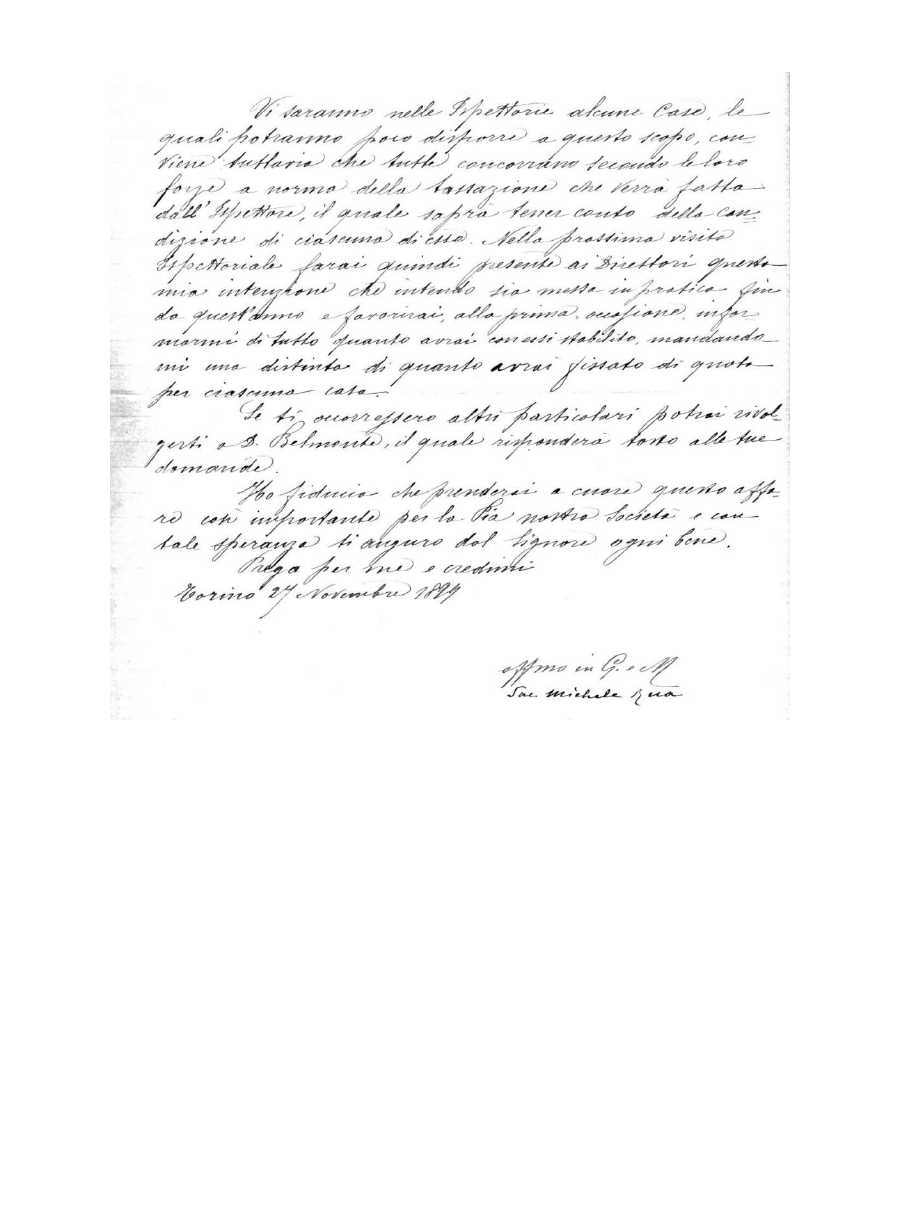 Vi saranno nelle Ispettorie alcune Case, le
quali potranno poco disporre a questo scopo, con-
viene tuttavia che tutte concorrano secondo le loro
forze a norma della tassazione che verrà fatta
dall'Ispettore, il quale saprà tener conto della con-
dizione di ciascuna di esse. Nella prossima visita
Ispettoriale farai quindi presente ai Direttori questa
mia intenzione che intendo sia messa in pratica fin
da quest'anno e favorirai, alla prima occasione, infor
marmi di tutto quanto avrai con essi stabilito, mandando-
mi una distinta di quanto avrai fissato di quota
per ciascuna casa.
Se ti occorressero altri particolari potrai rivol-
gerti a D. Belmonte, il quale risponderà tosto alle tue
domande.
Ho fiducia che prenderai a cuore questo affa-
re così importante per la Pia nostra Società e con
tale speranza ti auguro dal Signore ogni bene.
Prega per me e credimi
Torino 27 Novembre 1899
affmo in G. e M
Sac. Michele Rua